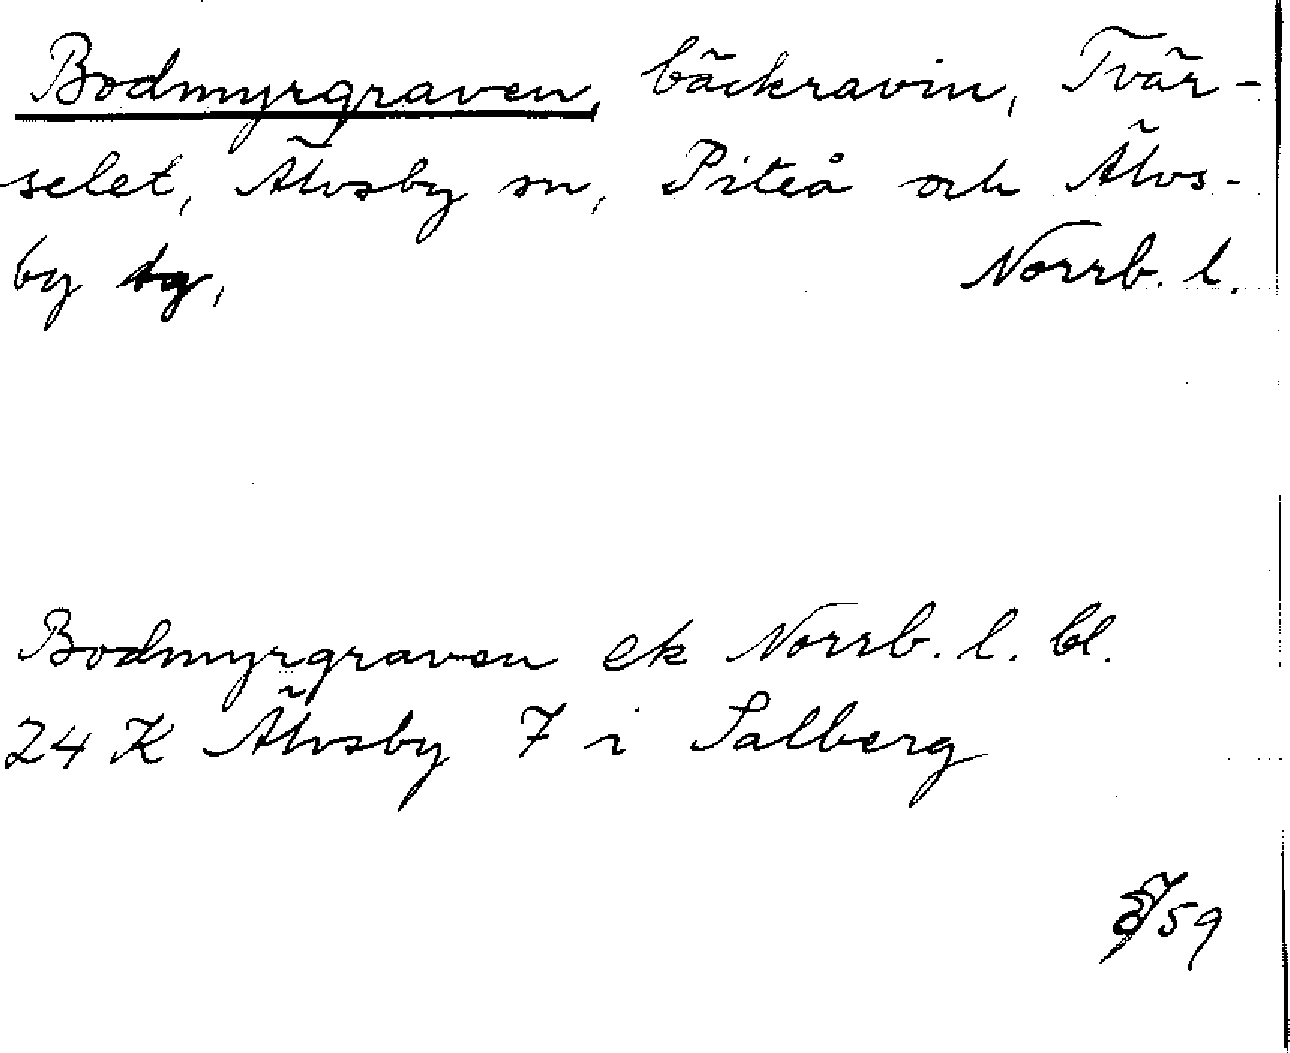 Bodmyrgraven, bäckravin, Tvär-
selet, Älvsby sn, Piteå och Älvs-
by tg, Norrb. l.
Bodmyrgraven ek Norrb. l. bl.
24 K Älvsby 7 i Salberg
59